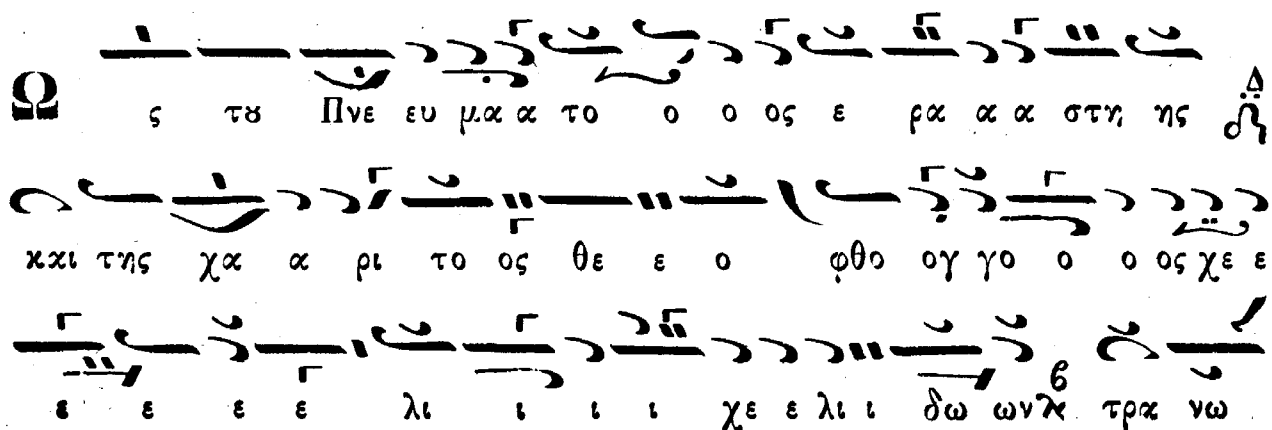 Ω ς τȣ Πνε ευ μα α α το ο ο ος ε ρα α α στη ης Δ
και της χα α ρι το ος θε ε ο φθο ογ γο ο ο ος χε ε
ε ε ε ε λι ι ι ι χε ε λι ι δω ων ϗ τρα νω